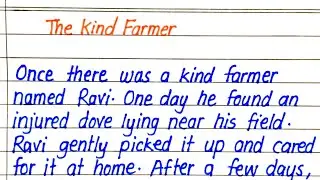 The Kind Farmer
Once there was a kind farmer
named Ravi. One day he found an
injured dove lying near his field.
Ravi gently picked it up and cared
for it at home. After a few days,